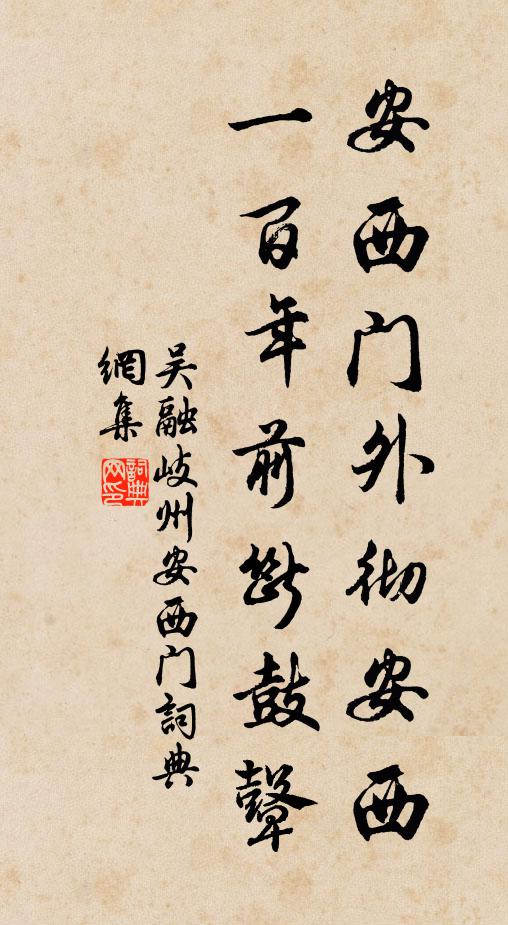 安西门外彻安西
一百年前断鼓鼙
吴融岐州安西门詞典
網集
詞典网印